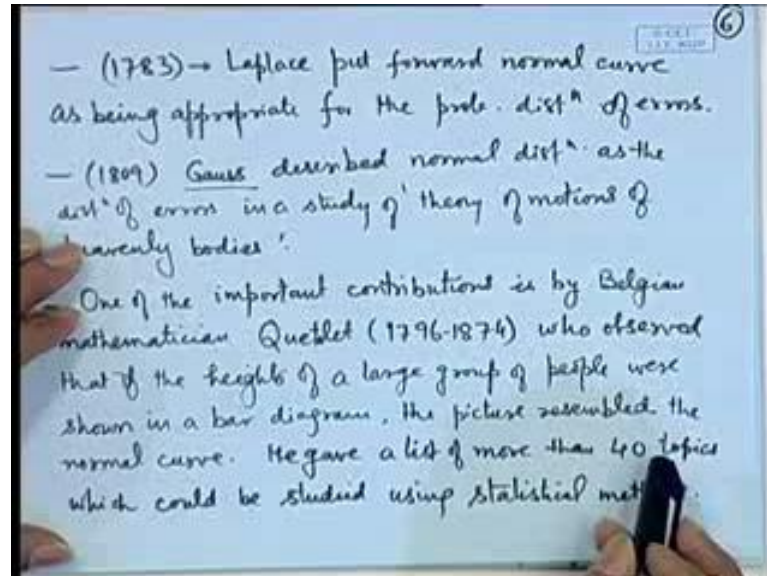 6
— (1783) → Laplace put forward normal curve
as being appropriate for the prob. distⁿ of errors.
— (1809) Gauss described normal distⁿ. as the
distⁿ of errors in a study of 'theory of motions of
heavenly bodies'.
One of the important contributions is by Belgian
mathematician Quetelet (1796-1874) who observed
that if the heights of a large group of people were
shown in a bar diagram, the picture resembled the
normal curve. He gave a list of more than 40 topics
which could be studied using statistical met